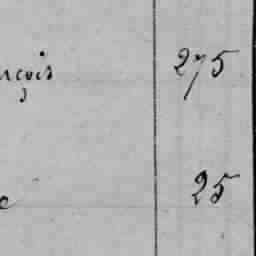 rçois 275
e 25